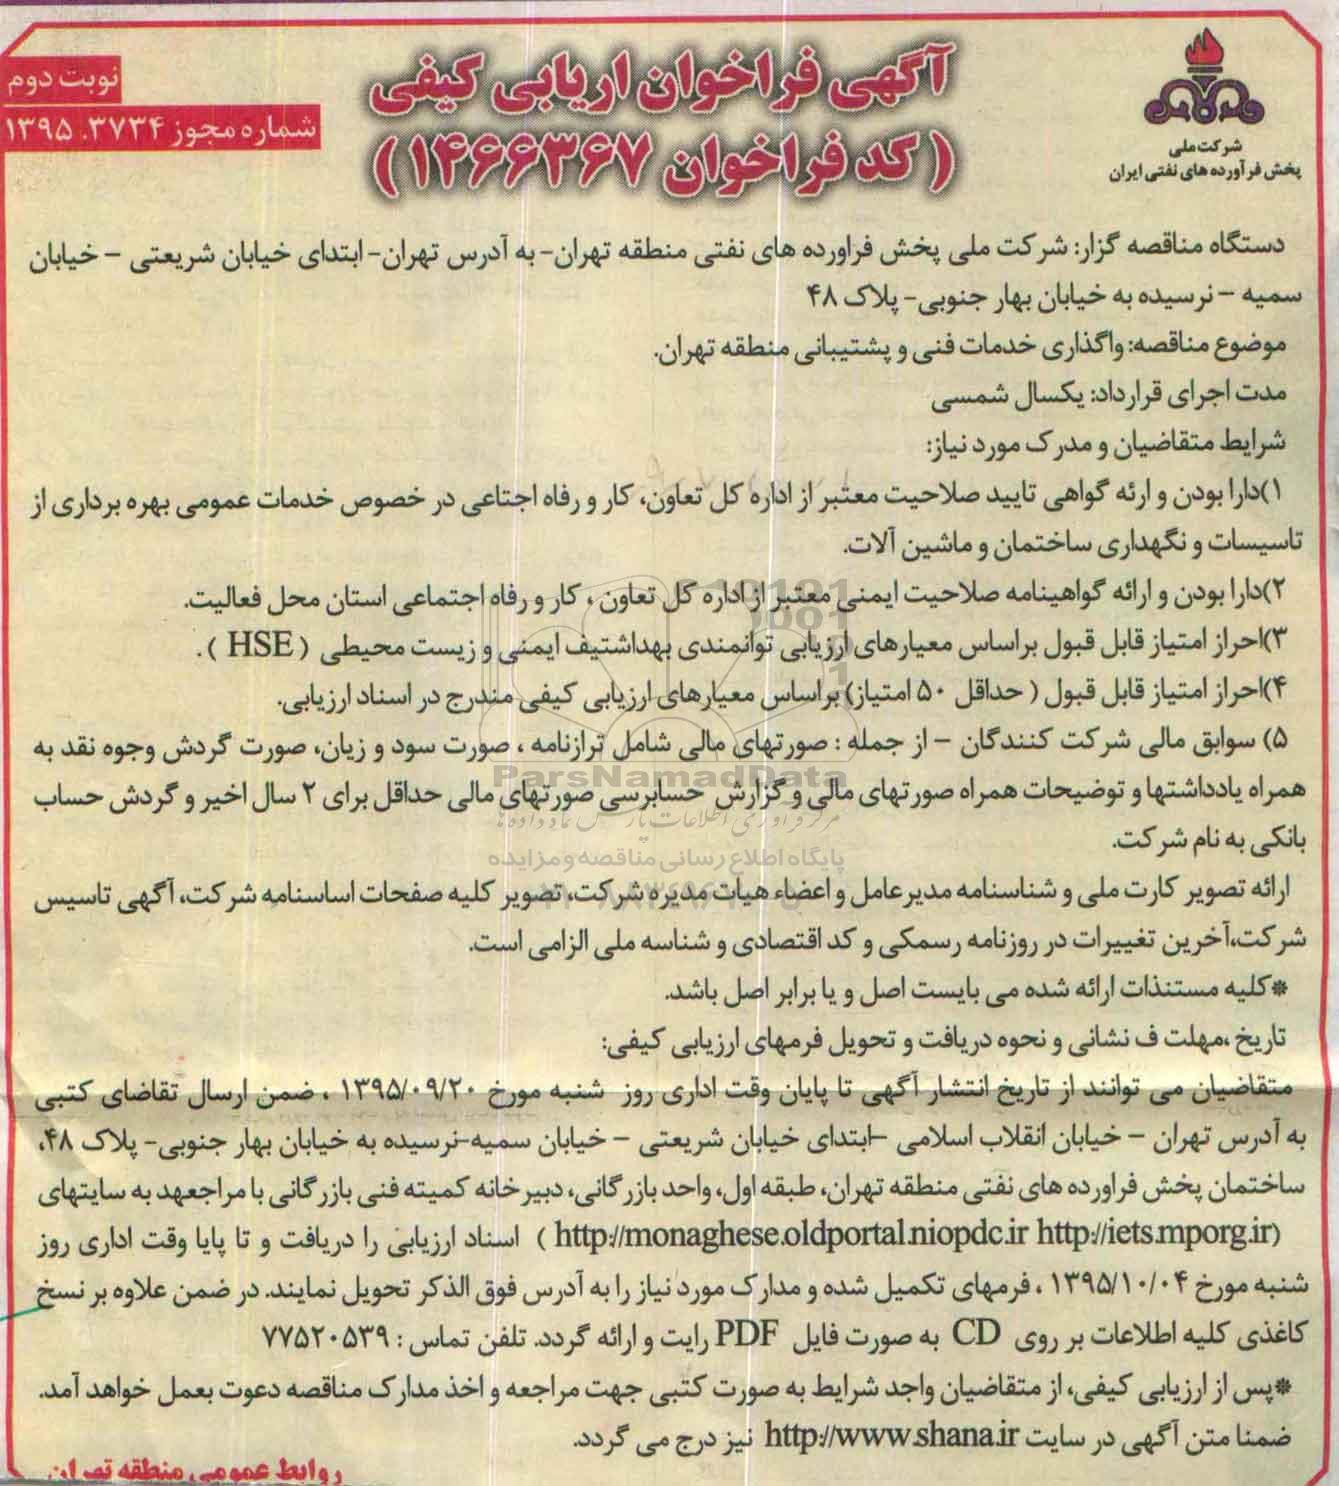 شرکت ملی
پخش فرآورده های نفتی ایران
آگهی فراخوان اریابی کیفی
(کد فراخوان ۱۴۶۶۳۶۷)
نوبت دوم
شماره مجوز ۳۷۳۴. ۱۳۹۵
دستگاه مناقصه گزار: شرکت ملی پخش فراورده های نفتی منطقه تهران- به آدرس تهران- ابتدای خیابان شریعتی – خیابان
سمیه – نرسیده به خیابان بهار جنوبی- پلاک ۴۸
موضوع مناقصه: واگذاری خدمات فنی و پشتیبانی منطقه تهران.
مدت اجرای قرارداد: یکسال شمسی
شرایط متقاضیان و مدرک مورد نیاز:
۱)دارا بودن و ارئه گواهی تایید صلاحیت معتبر از اداره کل تعاون، کار و رفاه اجتاعی در خصوص خدمات عمومی بهره برداری از
تاسیسات و نگهداری ساختمان و ماشین آلات.
۲)دارا بودن و ارائه گواهینامه صلاحیت ایمنی معتبر از اداره کل تعاون ، کار و رفاه اجتماعی استان محل فعالیت.
۳)احراز امتیاز قابل قبول براساس معیارهای ارزیابی توانمندی بهداشتیف ایمنی و زیست محیطی ( HSE ) .
۴)احراز امتیاز قابل قبول ( حداقل ۵۰ امتیاز) براساس معیارهای ارزیابی کیفی مندرج در اسناد ارزیابی.
۵) سوابق مالی شرکت کنندگان – از جمله : صورتهای مالی شامل ترازنامه ، صورت سود و زیان، صورت گردش وجوه نقد به
همراه یادداشتها و توضیحات همراه صورتهای مالی و گزارش حسابرسی صورتهای مالی حداقل برای ۲ سال اخیر و گردش حساب
بانکی به نام شرکت.
ارائه تصویر کارت ملی و شناسنامه مدیرعامل و اعضاء هیات مدیره شرکت، تصویر کلیه صفحات اساسنامه شرکت، آگهی تاسیس
شرکت،آخرین تغییرات در روزنامه رسمکی و کد اقتصادی و شناسه ملی الزامی است.
*کلیه مستنذات ارائه شده می بایست اصل و یا برابر اصل باشد.
تاریخ ،مهلت ف نشانی و نحوه دریافت و تحویل فرمهای ارزیابی کیفی:
متقاضیان می توانند از تاریخ انتشار آگهی تا پایان وقت اداری روز شنبه مورخ ۱۳۹۵/۰۹/۲۰ ، ضمن ارسال تقاضای کتبی
به آدرس تهران – خیابان انقلاب اسلامی –ابتدای خیابان شریعتی – خیابان سمیه-نرسیده به خیابان بهار جنوبی- پلاک ۴۸،
ساختمان پخش فراورده های نفتی منطقه تهران، طبقه اول، واحد بازرگانی، دبیرخانه کمیته فنی بازرگانی با مراجعهد به سایتهای
(http://monaghese.oldportal.niopdc.ir http://iets.mporg.ir) اسناد ارزیابی را دریافت و تا پایا وقت اداری روز
شنبه مورخ ۱۳۹۵/۱۰/۰۴ ، فرمهای تکمیل شده و مدارک مورد نیاز را به آدرس فوق الذکر تحویل نمایند. در ضمن علاوه بر نسخ
کاغذی کلیه اطلاعات بر روی CD به صورت فایل PDF رایت و ارائه گردد. تلفن تماس : ۷۷۵۲۰۵۳۹
*پس از ارزیابی کیفی، از متقاضیان واجد شرایط به صورت کتبی جهت مراجعه و اخذ مدارک مناقصه دعوت بعمل خواهد آمد.
ضمنا متن آگهی در سایت http://www.shana.ir نیز درج می گردد.
روابط عمومی منطقه تهران
ParsNamadData
مرکز فرآوری اطلاعات پارس نماد داده ها
پایگاه اطلاع رسانی مناقصه و مزایده